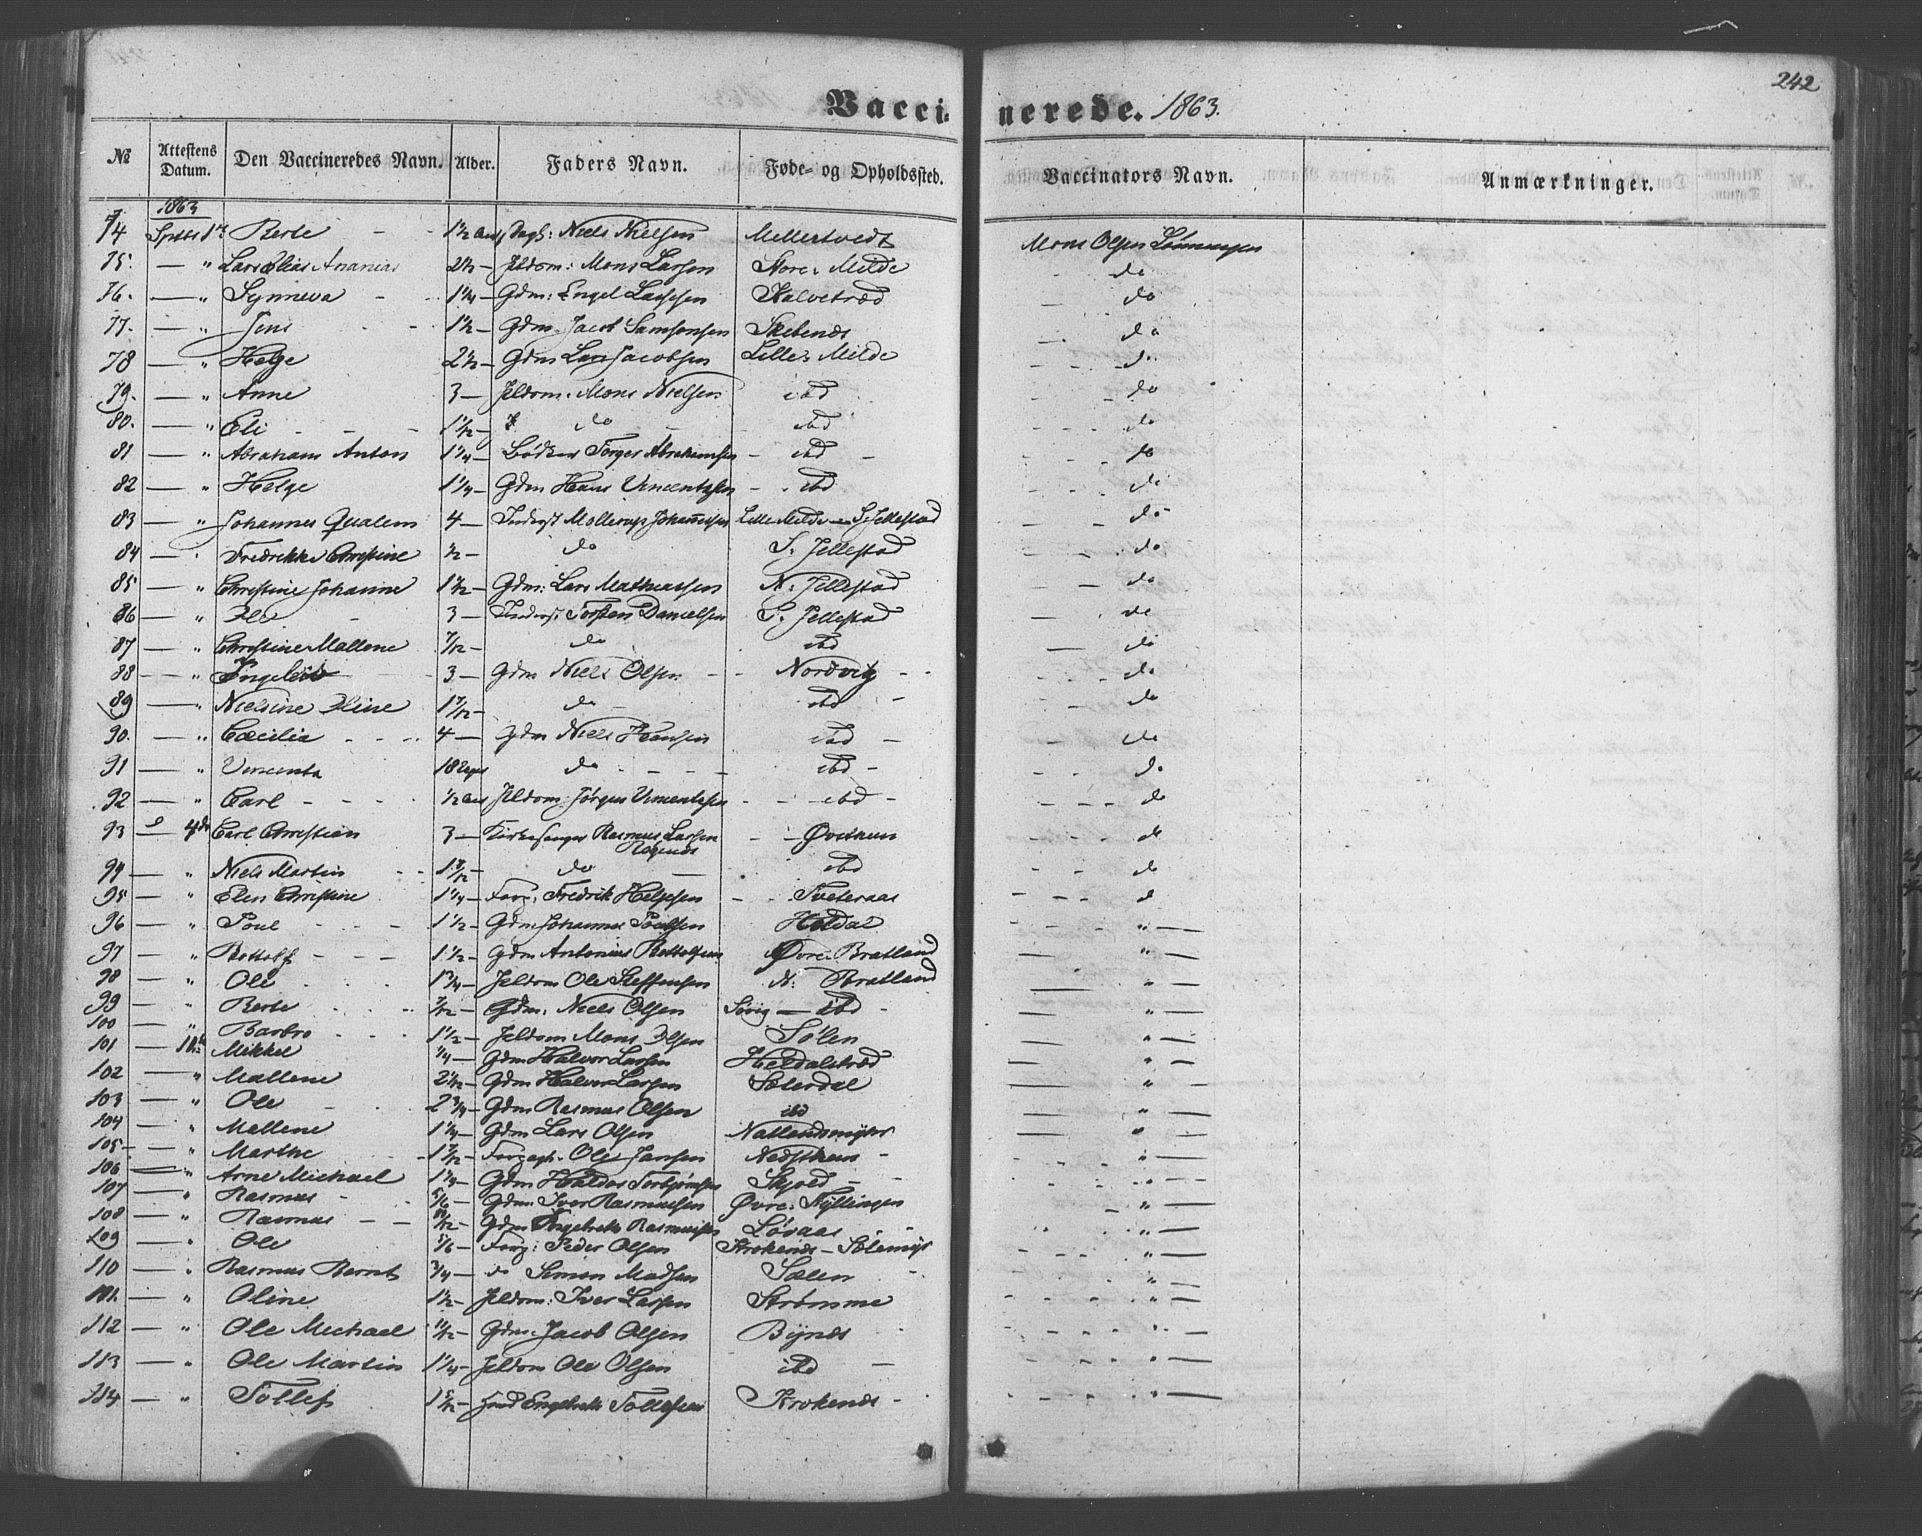 242
Vaccinerede. 1863.
№ Attestens Datum. Den Vaccineredes Navn. Alder. Faders Navn. Føde- og Opholdssted. Vaccinators Navn. Anmærkninger.
1863
74 Septbr 1ste Berte - - 1½ Aar Niels Nielsen Mellertvedt Mons Olsen
75. — " Lars Elias Ananias 2½ — Jeldom: Mons Larsen Store Milde do
76. — " Synneva - 1¼ — Gdm: Engel Larsen Kalvetræd do
77. — " Jens 1½ — Gdm. Jacob Samsonsen Skebends do
78 — " Helge 2½ — Gdm Lars Jacobsen Lille Milde do
79. — " Anne 3 — Jeldom: Mons Nielsen ibd do
80. — " Eli - - - do ibd do
81 — " Abraham Anton 1¼ — Bødker Torger Abrahamsen - ibd - do
82 — " Helge 1¼ — Gdm Hans Vincentsen - ibd do
83 — " Johannes Qualem 4 — Inderst Mollerup Johannesen Lille Milde — S. Jellestad do
84 — " Fredrikke Christine ½ — do S. Jellestad do
85 — " Christine Johanne 1½ — Gdm: Lars Mathiassen N. Jellestad do
86 — " Ole 3 — Inderst Torsten Danielsen S. Jellestad do
87 — " Christine Mallene 7/12 — do ibd do
88 — " 3 — Gdm Niels Olsen - - Nordvig - - do
89 — " Nielsine Oline 1 7/12 — do ibd do
90. — " Cæcilia - - - 4 — Gdm Niels Hansen ibd - do
91 — " Vincents 18 do - - - ibd - do
92 — " Carl - - - ½ Aar Jeldom: Jørgen Vincentsen - - ibd - do
93 — 4de Carl Christian 3 — Kirkesanger Rasmus Larsen - - Øvsthun do
94 — " Niels Martin do — ibd do
95 — " Elen Christine 1¼ — Forp: Fredrik Helgesen - - Tveteraas d
96 — " Poul - - - 1½ — Gdm Johannes Poulsen Heldal " —
97 — " Bottolf - - - 1½ — Gdm Antonius Bottolfsen Øvre Bratland " —
98 — " Ole - - - 1¾ — Jeldom Ole Steffensen N. Bratland " —
99 — " Berte - - - Gdm: Niels Olsen Sørig — ibd - " —
100 — " Barbro - - - 1½ — Jeldom Mons Olsen Sølen " —
101 — Mikkel ¼ — Gdm Halvor Larsen Heldalstræd " —
102 — " Mallene Gdm Halvor Larsen Sæterdal " —
103 — " Ole - 2¾ — Gdm Rasmus Olsen ibd " —
104 — " Mallene 1¼ — Gdm Lars Olsen Natlandsmyhr " —
105 — " Marthe - Ole Jansen Nedsthun - " —
106 — " Arne Michael 1¼ — Gdm Haldor Torbjørnsen Skjold - - " —
107 — " Rasmus - 5/6 — Gdm: Iver Rasmussen Øvre Tyllingen " —
108 — " Rasmus - - Gdm Rasmussen Løvaas " —
109 — " Ole Forp: Peder Olsen Strokends — Sølemyr " —
110 — " Rasmus Bernt ¾ — do Simon Madsen Sælen " —
111. — " Oline 1½ — Jeldom: Iver Larsen Strømme " —
112 — " Ole Michael 11/12 — Gdm. Jacob Olsen Bønds " —
113 — " Ole Martin 1¼ — Jeldom Ole Olsen ibd " —
114 — " Tollef Tollefsen Krokends - " —